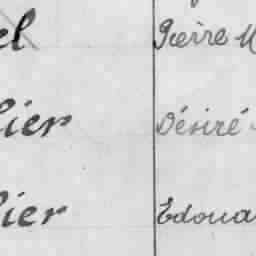 el Pierre M
lier Désiré
lier Edoua